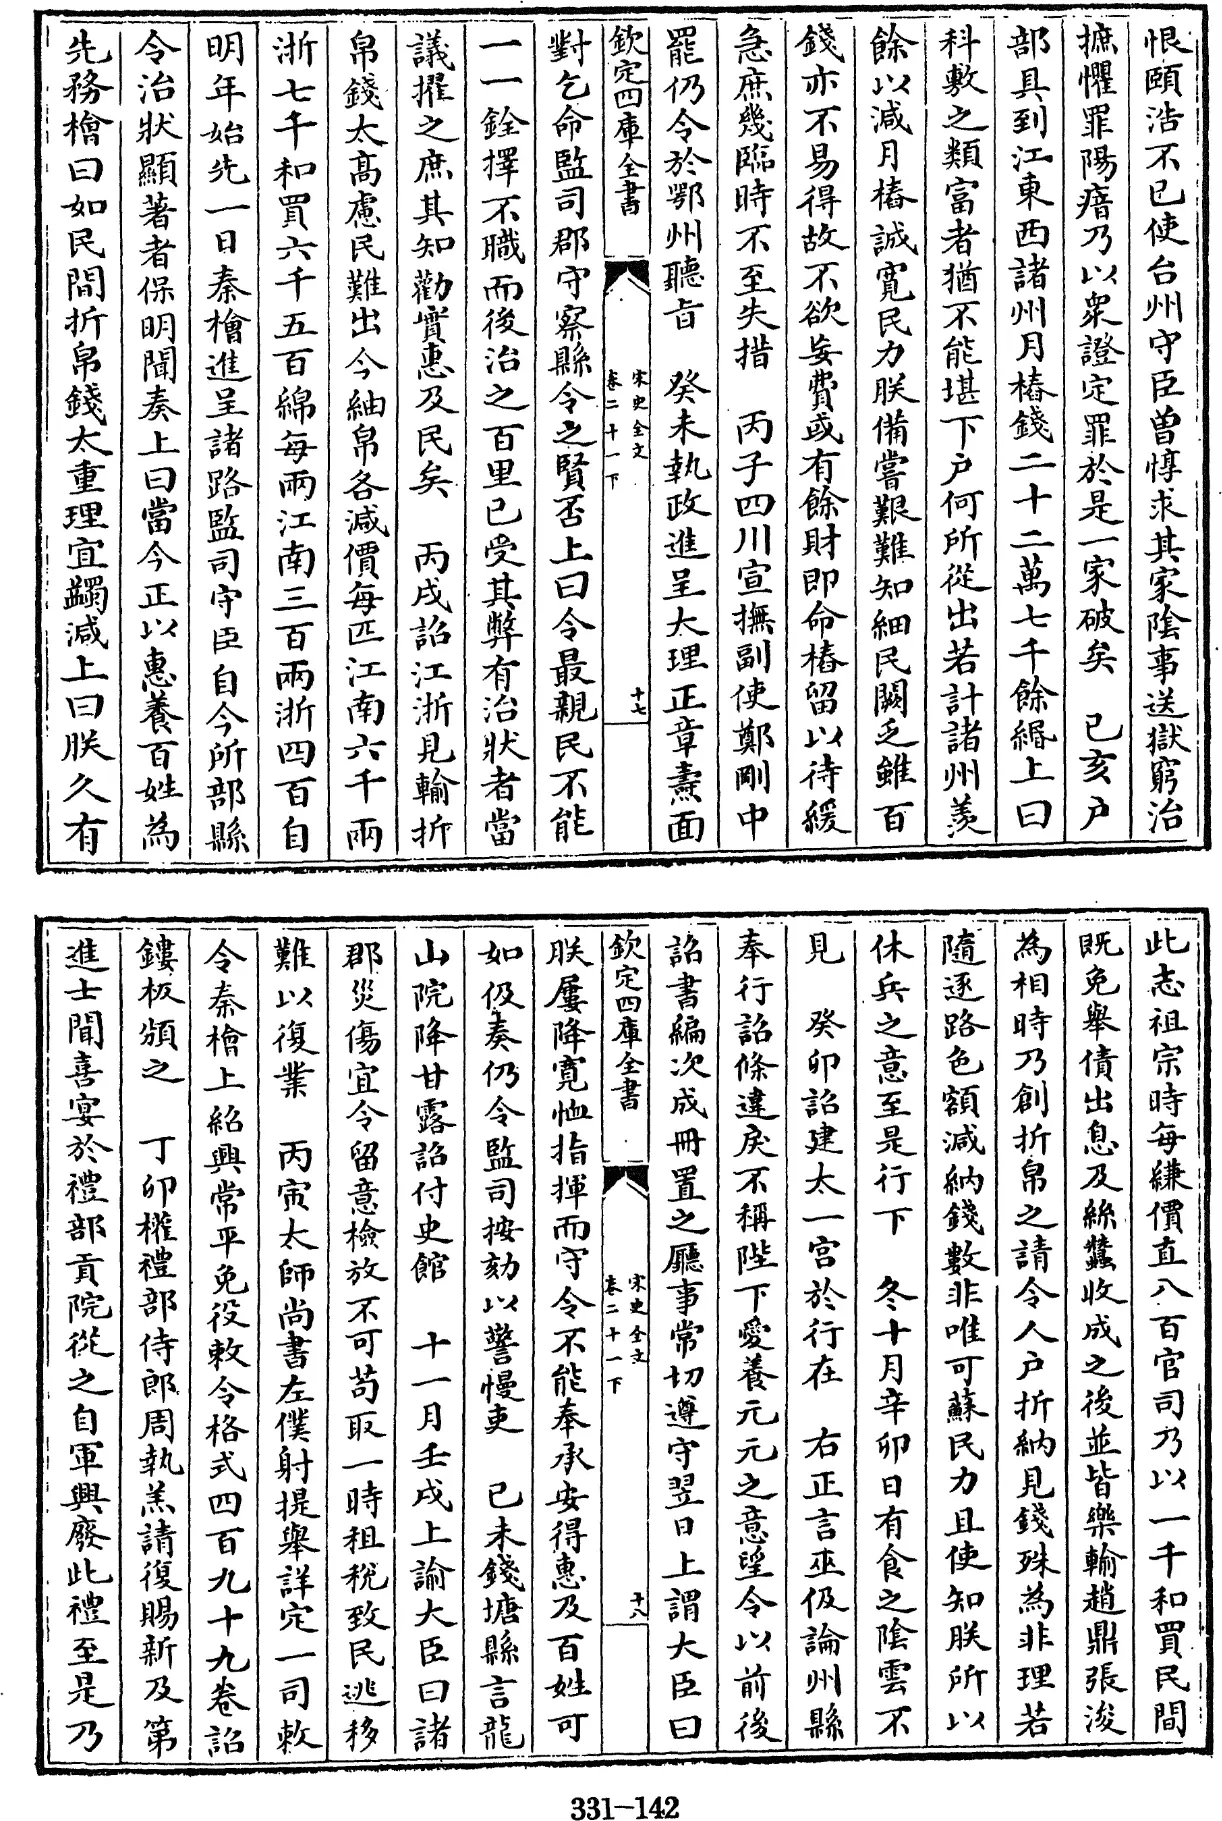 恨頤浩不已使台州守臣曽惇求其家陰事送獄窮治
摭懼罪陽瘖乃以衆證定罪於是一家破矣　已亥户
部具到江東西諸州月樁錢二十二萬七千餘緡上曰
科敷之類富者猶不能堪下户何所從出若計諸州羨
餘以減月樁誠寛民力朕備嘗艱難知細民闕乏雖百
錢亦不易得故不欲妄費或有餘財即命樁留以待緩
急庶幾臨時不至失措　丙子四川宣撫副使鄭剛中
罷仍令於鄂州聽旨　癸未執政進呈大理正章燾面
欽定四庫全書
宋史全文
卷二十一下
十七
對乞命監司郡守察縣令之賢否上曰令最親民不能
一一銓擇不職而後治之百里已受其弊有治狀者當
議擢之庶其知勸實惠及民矣　丙戌詔江浙見輸折
帛錢太髙慮民難出今紬帛各減價每匹江南六千兩
浙七千和買六千五百綿每兩江南三百兩浙四百自
明年始先一日秦檜進呈諸路監司守臣自今所部縣
令治狀顯著者保明聞奏上曰當今正以惠養百姓為
先務檜曰如民間折帛錢太重理宜蠲減上曰朕久有
此志祖宗時每縑價直八百官司乃以一千和買民間
既免舉債出息及絲蠶收成之後並皆樂輸趙鼎張浚
為相時乃創折帛之請令人户折納見錢殊為非理若
隨逐路色額減納錢數非唯可蘇民力且使知朕所以
休兵之意至是行下　冬十月辛卯日有食之陰雲不
見　癸卯詔建太一宫於行在　右正言巫伋論州縣
奉行詔條違戾不稱陛下愛養元元之意望令以前後
詔書編次成冊置之廳事常切遵守翌日上謂大臣曰
欽定四庫全書
宋史全文
卷二十一下
十八
朕屢降寛恤指揮而守令不能奉承安得惠及百姓可
如伋奏仍令監司按劾以警慢吏　已未錢塘縣言龍
山院降甘露詔付史館　十一月壬戌上諭大臣曰諸
郡災傷宜令留意檢放不可苟取一時租稅致民逃移
難以復業　丙寅太師尚書左僕射提舉詳定一司敕
令秦檜上紹興常平免役敕令格式四百九十九卷詔
鏤板頒之　丁卯權禮部侍郎周執羔請復賜新及第
進士聞喜宴於禮部貢院從之自軍興廢此禮至是乃
331-142